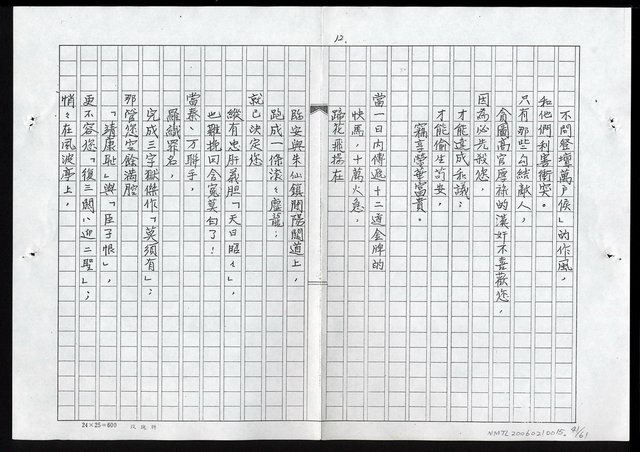 12.
不問登壇萬戶侯」的作風,
和他們利害衝突。
只有那些勾結敵人,
貪圖高官厚祿的漢奸不喜歡您,
因為必先殺您,
才能達成和議;
才能偷生苟安,
竊享榮華富貴。
當一日內傳遞十二道金牌的
快馬,十萬火急,
蹄花飛揚在
臨安與朱仙鎮間陽關道上,
跑成一條滾滾塵龍;
就已決定您
縱有忠肝義胆「天日昭々」,
也難挽回含冤莫白了!
當秦、万聯手,
羅織罪名,
完成三字獄傑作「莫須有」,
那管您空餘滿腔
「靖康恥」與「臣子恨」,
更不容您「復三關以迎二聖」;
悄々在風波亭上,
24×25=600
NMTL20060210015. 41/61